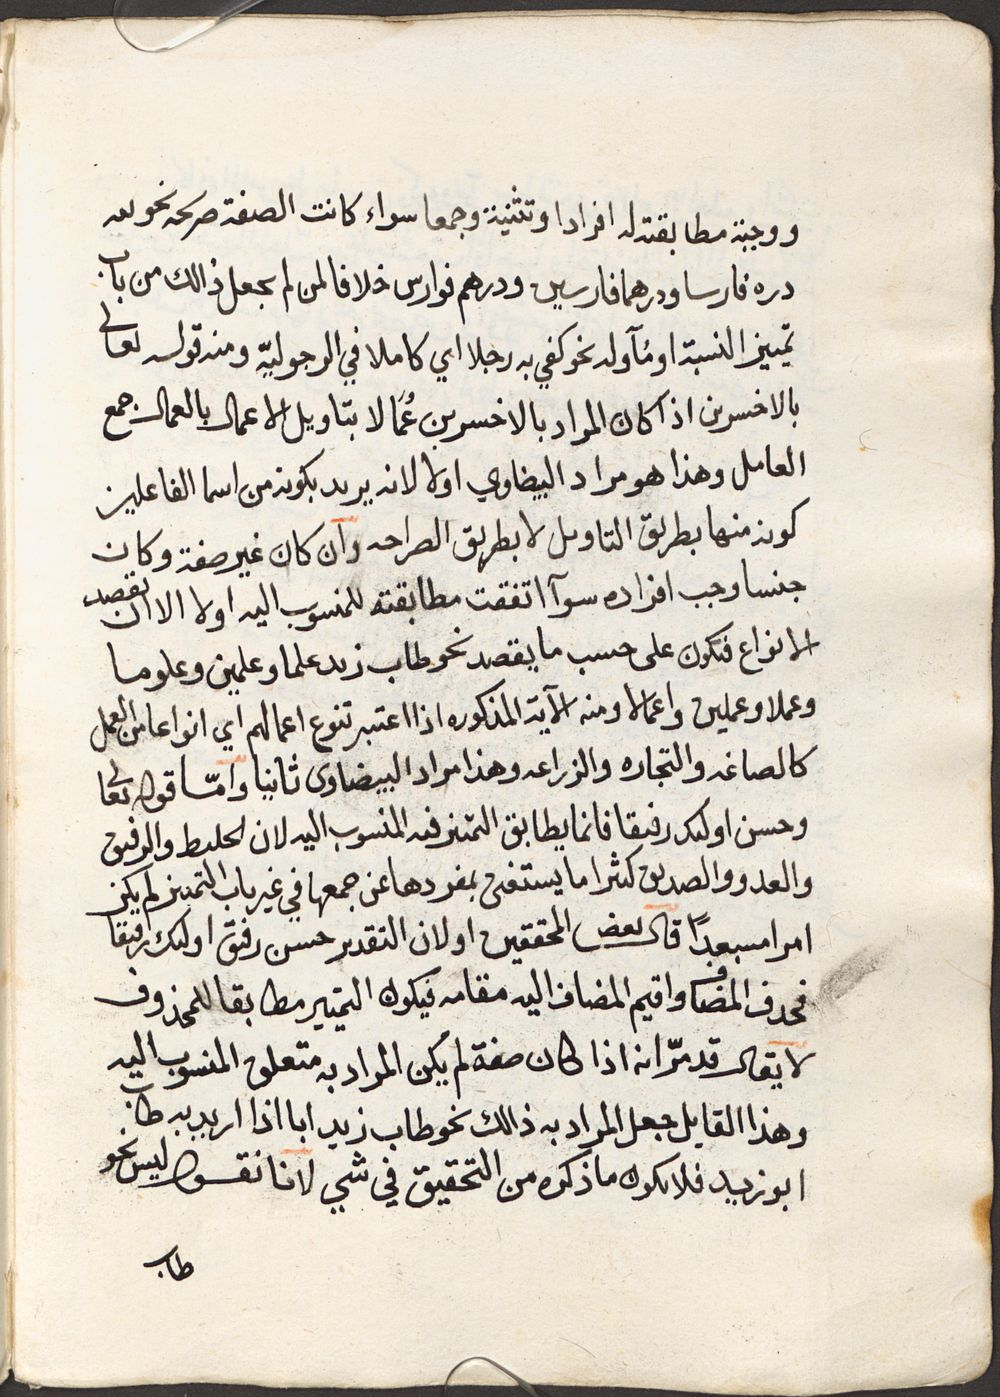 ووجبة مطابقته له افرادا وتثنية وجمعا سواء كانت الصفة صريحه نحو لله
دره فارسا ودرهما فارسين ودرهم فوارس خلافا لمن لم يجعل ذالك من باب
تمييز النسبة او مُآوله نحو كفي به رجلا اي كاملا في الرجوليّة ومنه قوله تعالى
بالاخسرين اذا كان المراد بالاخسرين عُمّالا بتاويل الاعمال بالعمال جمع
العامل وهذا هو مراد البيضاوي اولا لانه يريد بكونه من اسما الفاعلين
كونه منها بطريق التاويل لا بطريق الصراحه وان كان غير صفة وكان
جنسا وجب افراده سوآ اتفقت مطابقته للمنسوب اليه اولا الا ان تقصد
الانواع فتكون على حسب ما يقصد نحو طاب زيد علما وعلمين وعلوما
وعملا وعملين واعمالا ومنه الآية المذكوره اذا اعتبر تنوع اعمالهم اي انواعا من العمل
كالصاغه والتجاره والزراعه وهذا مراد البيضاوى ثانيا وامّا قوله تعالى
وحسن اولئك رفيقا فانما يطابق التمييز فيه المنسوب اليه لان الخليط والرفيق
والعدو والصديق كثيرا ما يستغنى بمفردها عن جمعها في غير باب التمييز لم يكن
امرا مسبعدًا قال بعض المحققين اولان التقدير حسن رفيق اولئك رفيقا
فحذف المضاف واقيم المضاف اليه مقامه فيكون التمييز مطابقا للمحذوف
لا يقال قد مرّ انه اذا كان صفة لم يكن المراد به متعلق المنسوب اليه
وهذا القايل جعل المراد به ذالك نحو طاب زيد ابا اذا اريد به طاب
ابو زيد فلا يكون ما ذكره من التحقيق في شي لانا نقول ليس نحو
طاب